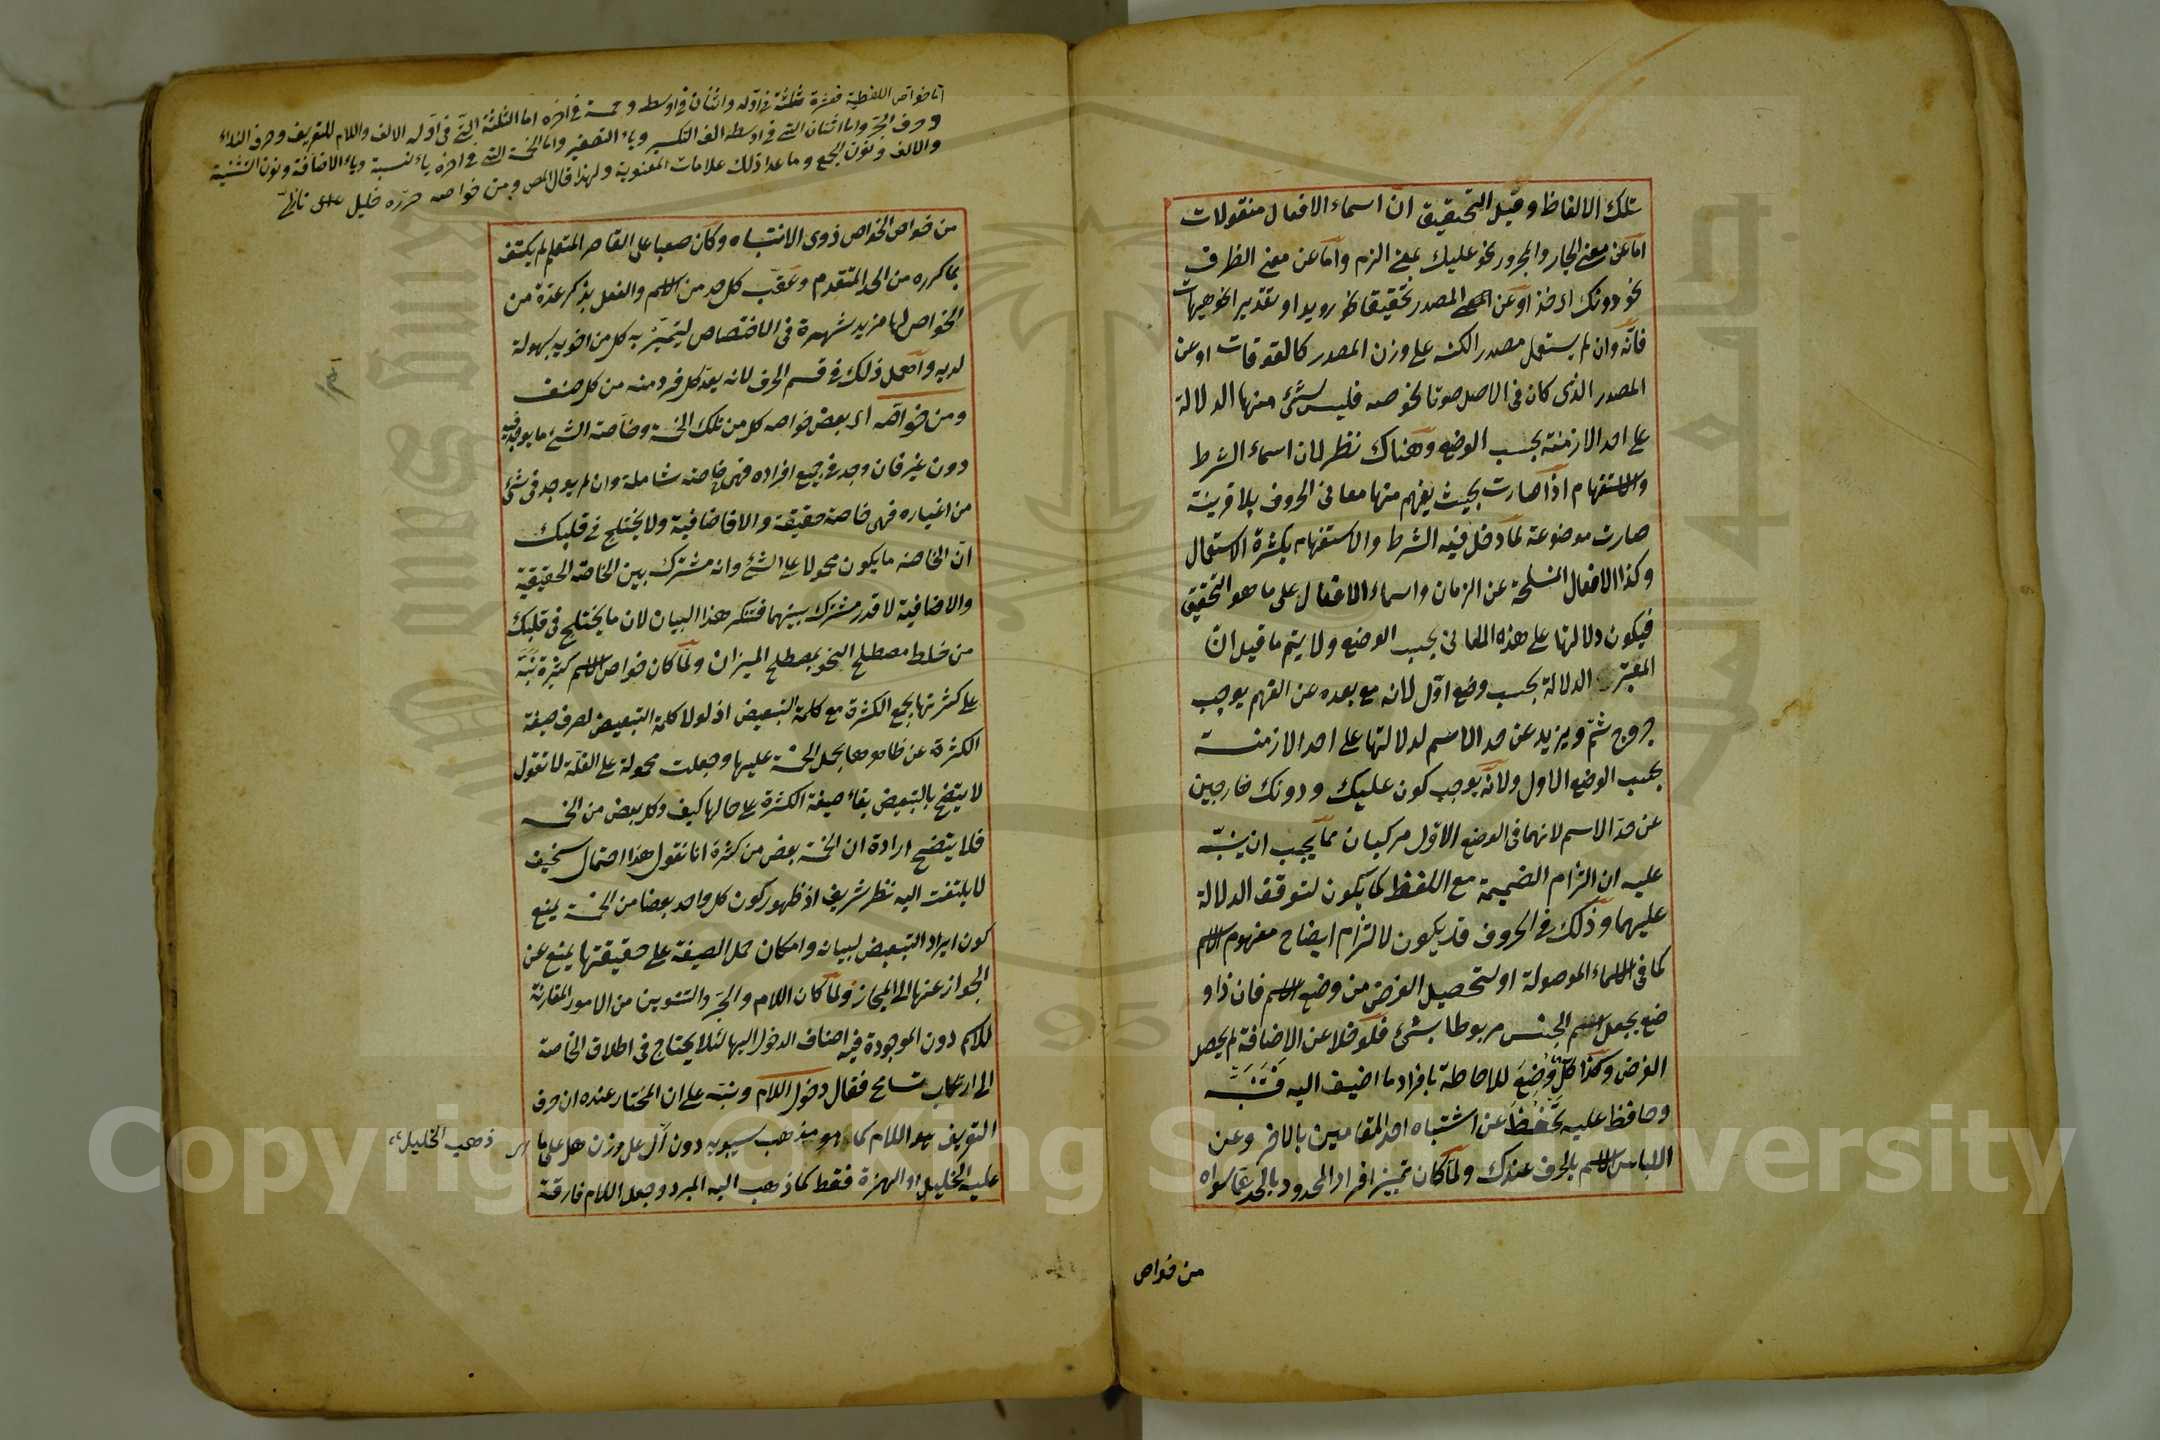 تلك الالفاظ وقيل التحقيق ان اسماء الافعال منقولات
اما عن معنى الجار والمجرور نحو عليك بمعنى الزم واما عن معنى الظرف
نحو دونك اى خذ او عن المصدر تحقيقا نحو رويد او بتقدير انحو هيهات
فانه وان لم يستعمل مصدرا لكنه على وزن المصدر كالقوقات او عن
المصدر الذى كان فى الاصل صوتا نحو صه فليس لشئ منها الدلالة
على احد الازمنة بحسب الوضع وهناك نظر لان اسماء الشرط
والاستفهام اذا صارت بحيث يفهم منها معانى الحروف بلا قرينة
صارت موضوعة لما دخل فيه الشرط والاستفهام بكثرة الاستعمال
وكذا الافعال المنسلخة عن الزمان واسماء الافعال على ما هو التحقيق
فيكون دلالتها على هذه المعانى بحسب الوضع ولا يتم ما قيل ان
المعتبر الدلالة بحسب وضع اول لانه مع بعده عن الفهم يوجب
خروج شتم ويزيد عن حد الاسم لدلالتها على احد الازمنة
بحسب الوضع الاول ولانه يوجب كون عليك ودونك خارجين
عن حد الاسم لانهما فى الوضع الاول مركبان مما يجب ان ينبّه
عليه ان التزام الضميمة مع اللفظ كما يكون لتوقف الدلالة
عليهما وذلك فى الحروف قد يكون لالتزام ايضاح مفهوم الاسم
كما فى الاسماء الموصولة او لتحصيل الغرض من وضع الاسم فان ذا و
ضع بجعل اسم الجنس مربوطا بشئ فلو خلا عن الاضافة لم يحصل
الغرض وكذا كلّ وُضِعَ للاحاطة بافراد ما اضيف اليه فَتَنَبَّه
وحافظ عليه تَحَفُّظًا عن اشتباه احد المقامين بالاخر وعن
التباس الاسم بالحرف عندك ولما كان تميز افراد المحدود بالحد عما سواه
من خواص
اما خواص اللفظية فعشرة ثلثة فى اوله واثنان فى اوسطه وخمسة فى اخره اما الثلثة التى فى اوله الالف واللام للتعريف وحرف النداء
وحرف الجر واما اثنان التى فى اوسطه الف التكسير وياء التصغير واما الخمسة التى فى اخره ياء نسبة وياء الاضافة ونون التثنية
والالف ونون الجمع وما عدا ذلك علامات المعنوية ولهذا قال المص ومن خواصه حرره خليل
من خواص الخواص ذوى الانتباه وكان صعبا على القاصر المتعلم لم يكتف
بما كرره من الحد المتقدم وعقّب كل حد من الاسم والفعل بذكر عدة من
الخواص لها مزيد شهرة فى الاختصاص ليتميّز به كل من اخويه بسهولة
لديه واهمل ذلك فى قسم الحرف لانه يعدّ كل فرد منه من كل صنف
ومن خواصه اى بعض خواصه كل من تلك الخمسة وخاصة الشئ ما يوجد فيه
دون غيره فان وجد فى جميع افراده فهى خاصة شاملة وان لم يوجد فى شئ
من اغياره فهى خاصة حقيقة والا فاضافية ولا يختلج فى قلبك
انّ الخاصة ما يكون محمولا على الشئ وانه مشترك بين الخاصة الحقيقية
والاضافية لا قدر مشترك بينهما فتنكر هذا البيان لان ما يختلج فى قلبك
من خلط مصطلح النحو بمصطلح الميزان ولما كان خواص الاسم كثيرة نَبَّهَ
على كثرتها بجمع الكثرة مع كلمة التبعيض اذ لولا كلمة التبعيض لصرف صيغة
الكثرة عن ظاهرها بحمل الخمسة عليها وجعلت محمولة على القلة لا نقول
لا يتضح بالتبعيض بقاء صيغة الكثرة على حالها كيف وكل بعض من الخمسة
فلا يتضح ارادة ان الخمسة بعض من كثرة انا نقول هذا احتمال سخيف
لا يلتفت اليه نظر شريف اذ ظهور كون كل واحد بعضا من الخمسة يمنع
كون ايراد التبعيض لبيانه وامكان حمل الصيغة على حقيقتها يمنع عن
الجواز عنها الى المجاز ولما كان اللام والجر والتنوين من الامور المقارنة
للاسم دون الموجودة فيه اضاف الدخول اليها لئلا يحتاج فى اطلاق الخاصة
الى ارتكاب تسامح فقال دخول اللام ونبّه على ان المختار عنده ان حرف
التعريف هو اللام كما هو مذهب سيبويه دون ال على وزن هل على ما
ذهب الخليل
عليه الخليل او الهمزة فقط كما ذهب اليه المبرد وجعل اللام فارقة
Copyright © King Saud University